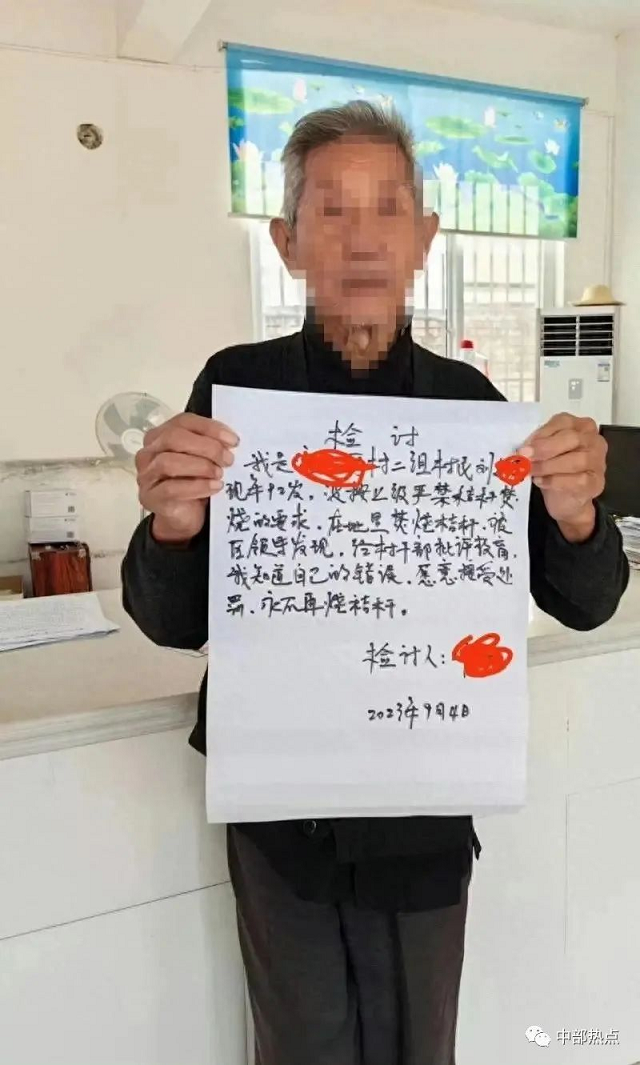 检讨
我是村二组村民刘
现年92岁，没按上级严禁秸秆焚
烧的要求，在地里焚烧秸秆，被
区领导发现，给村干部批评教育，
我知道自己的错误，愿意接受处
罚，永不再烧秸秆。
检讨人：
2023年9月4日
中部热点